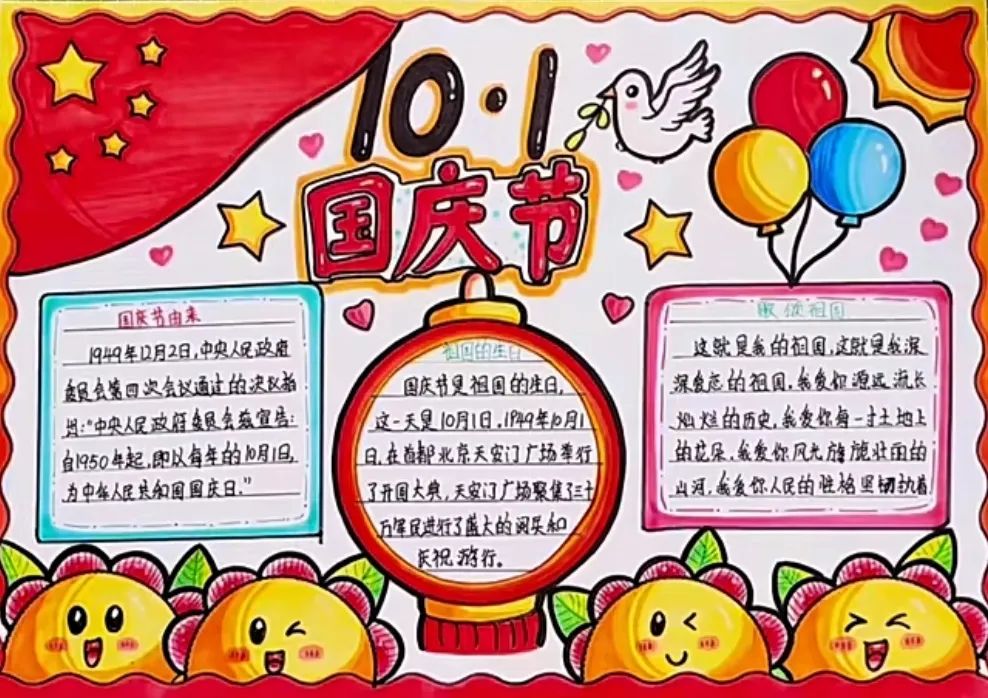 10·1
国庆节
国庆节由来
1949年12月2日,中央人民政府
委员会第四次会议通过的决议指
出:"中央人民政府委员会兹宣告:
自1950年起,即以每年的10月1日,
为中华人民共和国国庆日."
祖国的生日
国庆节是祖国的生日,
这一天是10月1日,1949年10月1
日,在首都北京天安门广场举行
了开国大典,天安门广场聚集了三十
万军民进行了盛大的阅兵和
庆祝游行。
歌颂祖国
这就是我的祖国,这就是我深
深爱恋的祖国,我爱你源远流长
灿烂的历史,我爱你每一寸土地上
的花朵,我爱你风光旖旎壮丽的
山河,我爱你人民的性格坚韧执着